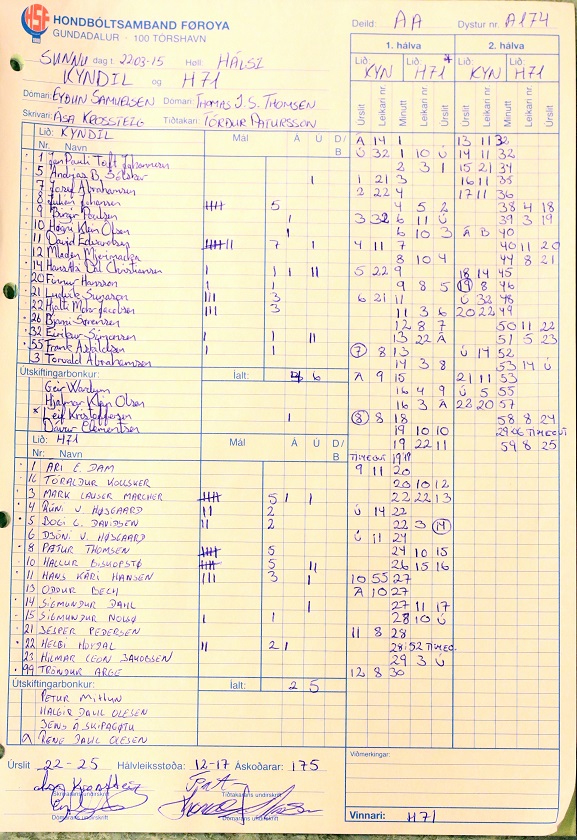 HSF HONDBÓLTSAMBAND FØROYA
GUNDADALUR - 100 TÓRSHAVN
Deild: AA Dystur nr. A174
SUNNU dag 22-03-15 Høll HÁLSI
KYNDIL og H71
Dómari EYÐUN SAMUELSEN Dómari THOMAS J. S. THOMSEN
Skrivari ÁSA KROSSTEIG Tíðtakari TÓRÐUR PATURSSON
1. hálva 2. hálva
Lið: KYN Lið: H71 Lið: KYN Lið: H71
Úrslit Leikari nr. Minutt Leikari nr. Úrslit Úrslit Leikari nr. Minutt Leikari nr. Úrslit
Lið: KYNDIL
Nr. Navn Mál Á Ú D/B
1 Jan Pauli Toft Johannesen
5 Andrias B. Selskor 1
7 Josef Abrahamsen
8 Julian Johansen 5
9 Birgir Poulsen 1
10 Høgni Klein Olsen 1
11 David Edvardsen 7 1 1
12 Mladen Mjerimacka
14 Hans Atli Dal Christiansen 1 1 11
20 Finnur Hansson 1
21 Ludvík Sugaron 3
22 Hjalti Mohr Jacobsen 3
26 Bjarni Sørensen
32 Eiríkur Sørensen 1 1 11
55 Frank Asbaldsen 1 1
3 Torvald Abrahamsen
Útskiftingarbonkur: Íalt: 4 6
Geir Wardum
Hjalmar Klein Olsen
x Leif Kristoffersen 1
Davur Clementsen
Lið: H71
Nr. Navn Mál Á Ú D/B
1 ARI E. DAM
16 TÓRALDUR KOLLSKER
3 MARK LAUSER MARCHER 5 1 1
4 RÚNI V. HØJGAARD 2
5 BOGI C. DAVIDSEN 2
6 DJÓNI V. HØJGAARD
8 PÆTUR THOMSEN 5
10 HALLUR BISKOPSTØ 5 11
11 HANS KÁRI HANSEN 3 1
13 ODDUR BECH
14 SIGMUNDUR DAHL 1
15 SIGMUNDUR NOLSØ 1 1
21 JESPER PEDERSEN
22 HELGI HOYDAL 2 1
23 HILMAR LEON JAKOBSEN
99 TRÓNDUR ARGE
Útskiftingarbonkur: Íalt: 2 5
PETUR Mittún
HALGIR DAHL OLESEN
JENS Á SKIPAGØTU
a RENE DAHL OLESEN
Úrslit 22 - 25 Hálvleiksstøða: 12-17 Áskoðarar: 175
Skrivarans undirskrift Tíðtakarans undirskrift
Dómarans undirskrift Dómarans undirskrift
Á 14 1
Ú 32 1 10 Ú
2 3 1
1 21 3
2 22 4
4 5 2
3 32 6 11 Ú
6 10 3
4 11 7
8 10 4
5 22 9
9 8 5
6 21 11
11 3 6
12 8 7
13 22 Á
7 8 13
14 3 8
Á 9 15
16 4 9
16 3 Á
8 8 18
19 10 10
19 22 11
TIMEOUT 19 19
9 11 20
20 10 12
22 22 13
Ú 14 22
22 3 14
Ú 11 24
24 10 15
26 15 16
10 55 27
Á 10 27
27 11 17
28 10 Ú
11 8 28
28:52 TIMEO.
29 3 Ú
12 8 30
13 11 32
14 11 32
15 21 34
16 11 35
17 11 36
38 4 18
39 3 19
Á B 40
40 11 20
44 8 21
18 14 45
19 8 46
Ú 32 48
20 22 49
50 11 22
51 5 23
Ú 14 52
53 14 Ú
21 11 53
Ú 5 55
22 20 57
58 8 24
29:06 TIMEOUT
59 8 25
Viðmerkingar:
Vinnari: H71